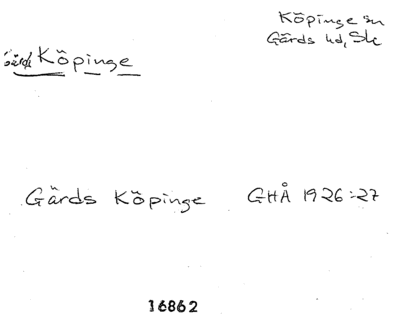 Köpinge sn
Gärds hd, Sk
Köpinge
Gärds Köpinge GHÅ 1926:27
16862